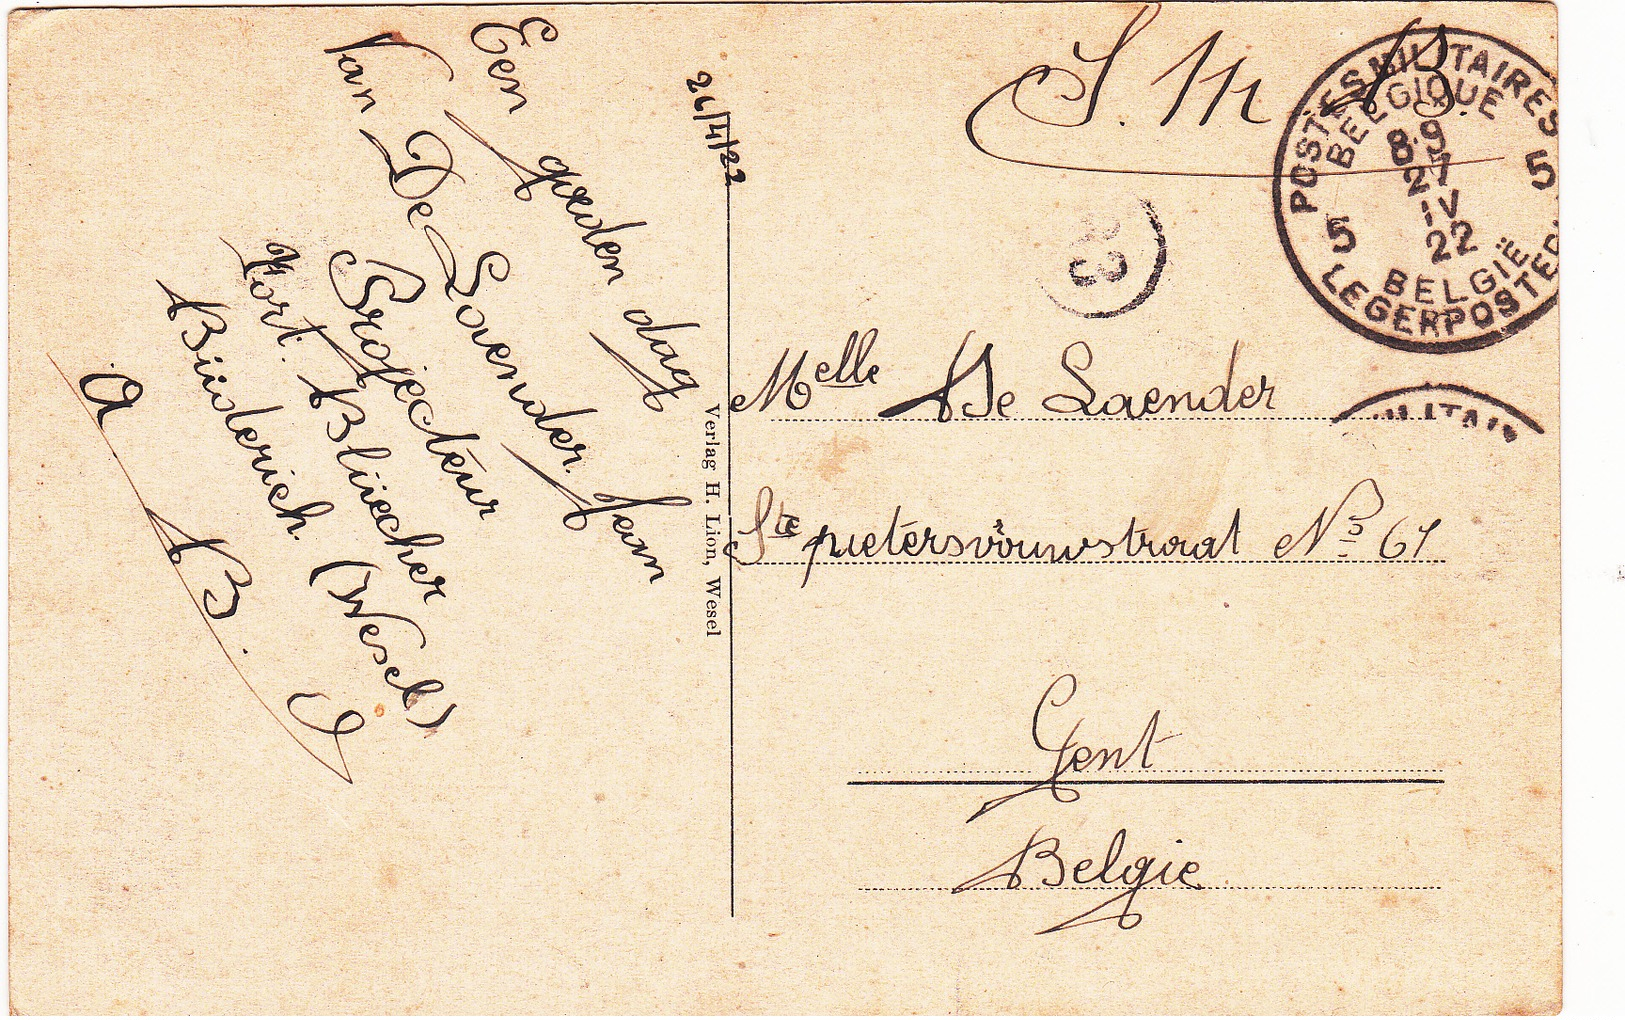 26/4/22
Een goeden dag
Van De Laender Jean
Projecteur
Fort. Blüecher
Büüderich. (Wesel)
A B. O
Verlag H. Lion, Wesel
S. M. B.
POSTES MILITAIRES
BELGIQUE
8-9
27
IV
22
5 5
BELGIË
LEGERPOSTERIJ
MILITAI
Melle De Laender
Ste pietersvrouwstraat No 67
Gent
Belgie